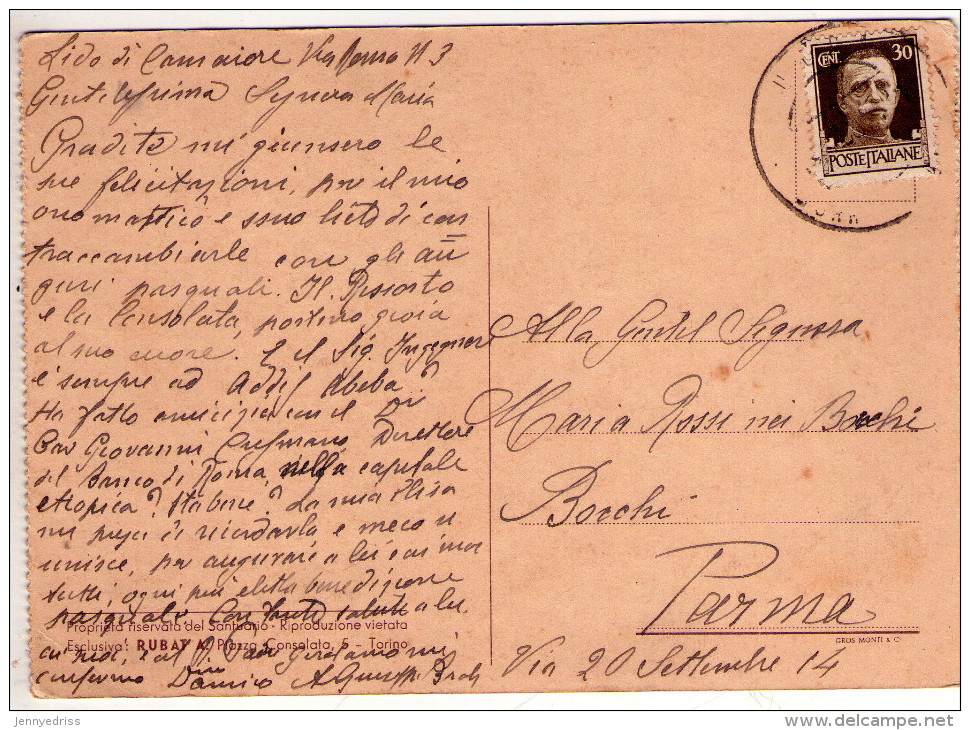 Lido di Camaiore Via Roma N 3
Gentilissima Signora Maria
Gradite mi giunsero le
sue felicitazioni, per il mio
onomastico e sono lieto di con
traccambiarle con gli au
guri pasquali. Il Risorto
e la Consolata, portino gioia
al suo cuore. E il Sig. Ingegnere
è sempre ad Addis Abeba?
Ha fatto amicizia con il
Cav Giovanni Direttore
del Banco di Roma nella capitale
etiopica? Sta bene? La mia Elisa
mi prega di ricordarla e meco si
unisce, per augurare a lei
tutti, ogni più eletta benedizione
pasquale. Con tanti saluti a lei
Proprietà riservata del Santuario - Riproduzione vietata
Esclusiva: RUBAT A. Piazza Consolata, 5 - Torino
mi
confermo
CENT. 30
POSTE ITALIANE
Alla Gentil Signora
Maria Rossi nei Bocchi
Bocchi
Parma
GROS MONTI & C.
Via 20 Settembre 14
jennyedriss
delcampe.net